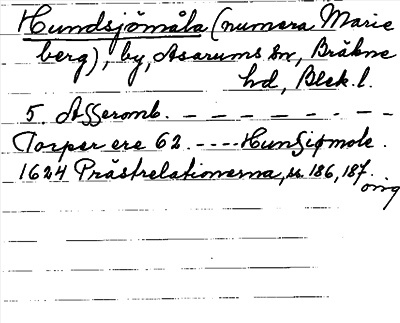 Hundsjömåla (numera Marie
berg), by, Asarums sn, Bräkne
hd, Blek. l.
5. Asseromb. — — — — — — —
Torper ere 62. ---- Hunsiømole.
1624 Prästrelationerna, s. 186, 187.
orig